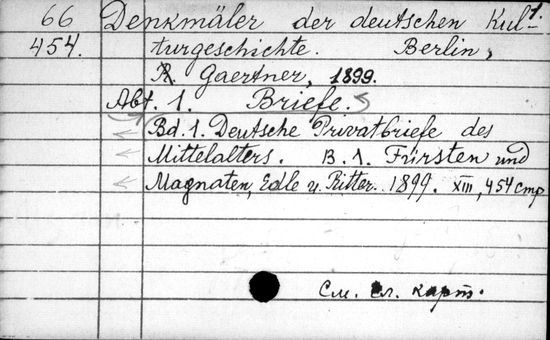 1.
66 Denkmäler der deutschen Kul-
454. turgeschichte. Berlin,
R. Gaertner, 1899.
Abt. 1. Briefe.
Bd. 1. Deutsche Privatbriefe des
Mittelalters. B. 1. Fürsten und
Magnaten, Edle u. Ritter. 1899. XIII, 454 стр
См. сл. карт.